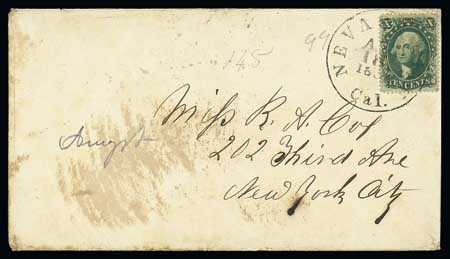 99
145
NEVA
A
18
185
Cal.
TEN CENTS
Miss R. A. Coy
202 Third Ave
New York City